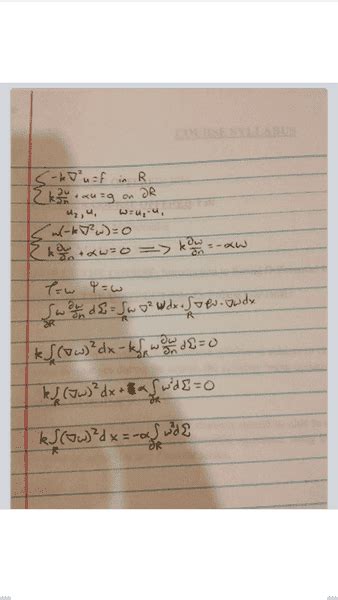 COURSE SYLLABUS
{ -k∇²u = f in R
k ∂u/∂n + αu = g on ∂R
u₂, u₁ w = u₂ - u₁
{ w(-k∇²w) = 0
k ∂w/∂n + αw = 0 ⟹ k ∂w/∂n = -αw
φ = w ψ = w
∫_∂R w ∂w/∂n dΣ = ∫_R w ∇²w dx + ∫_R ∇w · ∇w dx
k ∫_R (∇w)² dx - k ∫_∂R w ∂w/∂n dΣ = 0
k ∫_R (∇w)² dx + α ∫_∂R w² dΣ = 0
k ∫_R (∇w)² dx = -α ∫_∂R w² dΣ